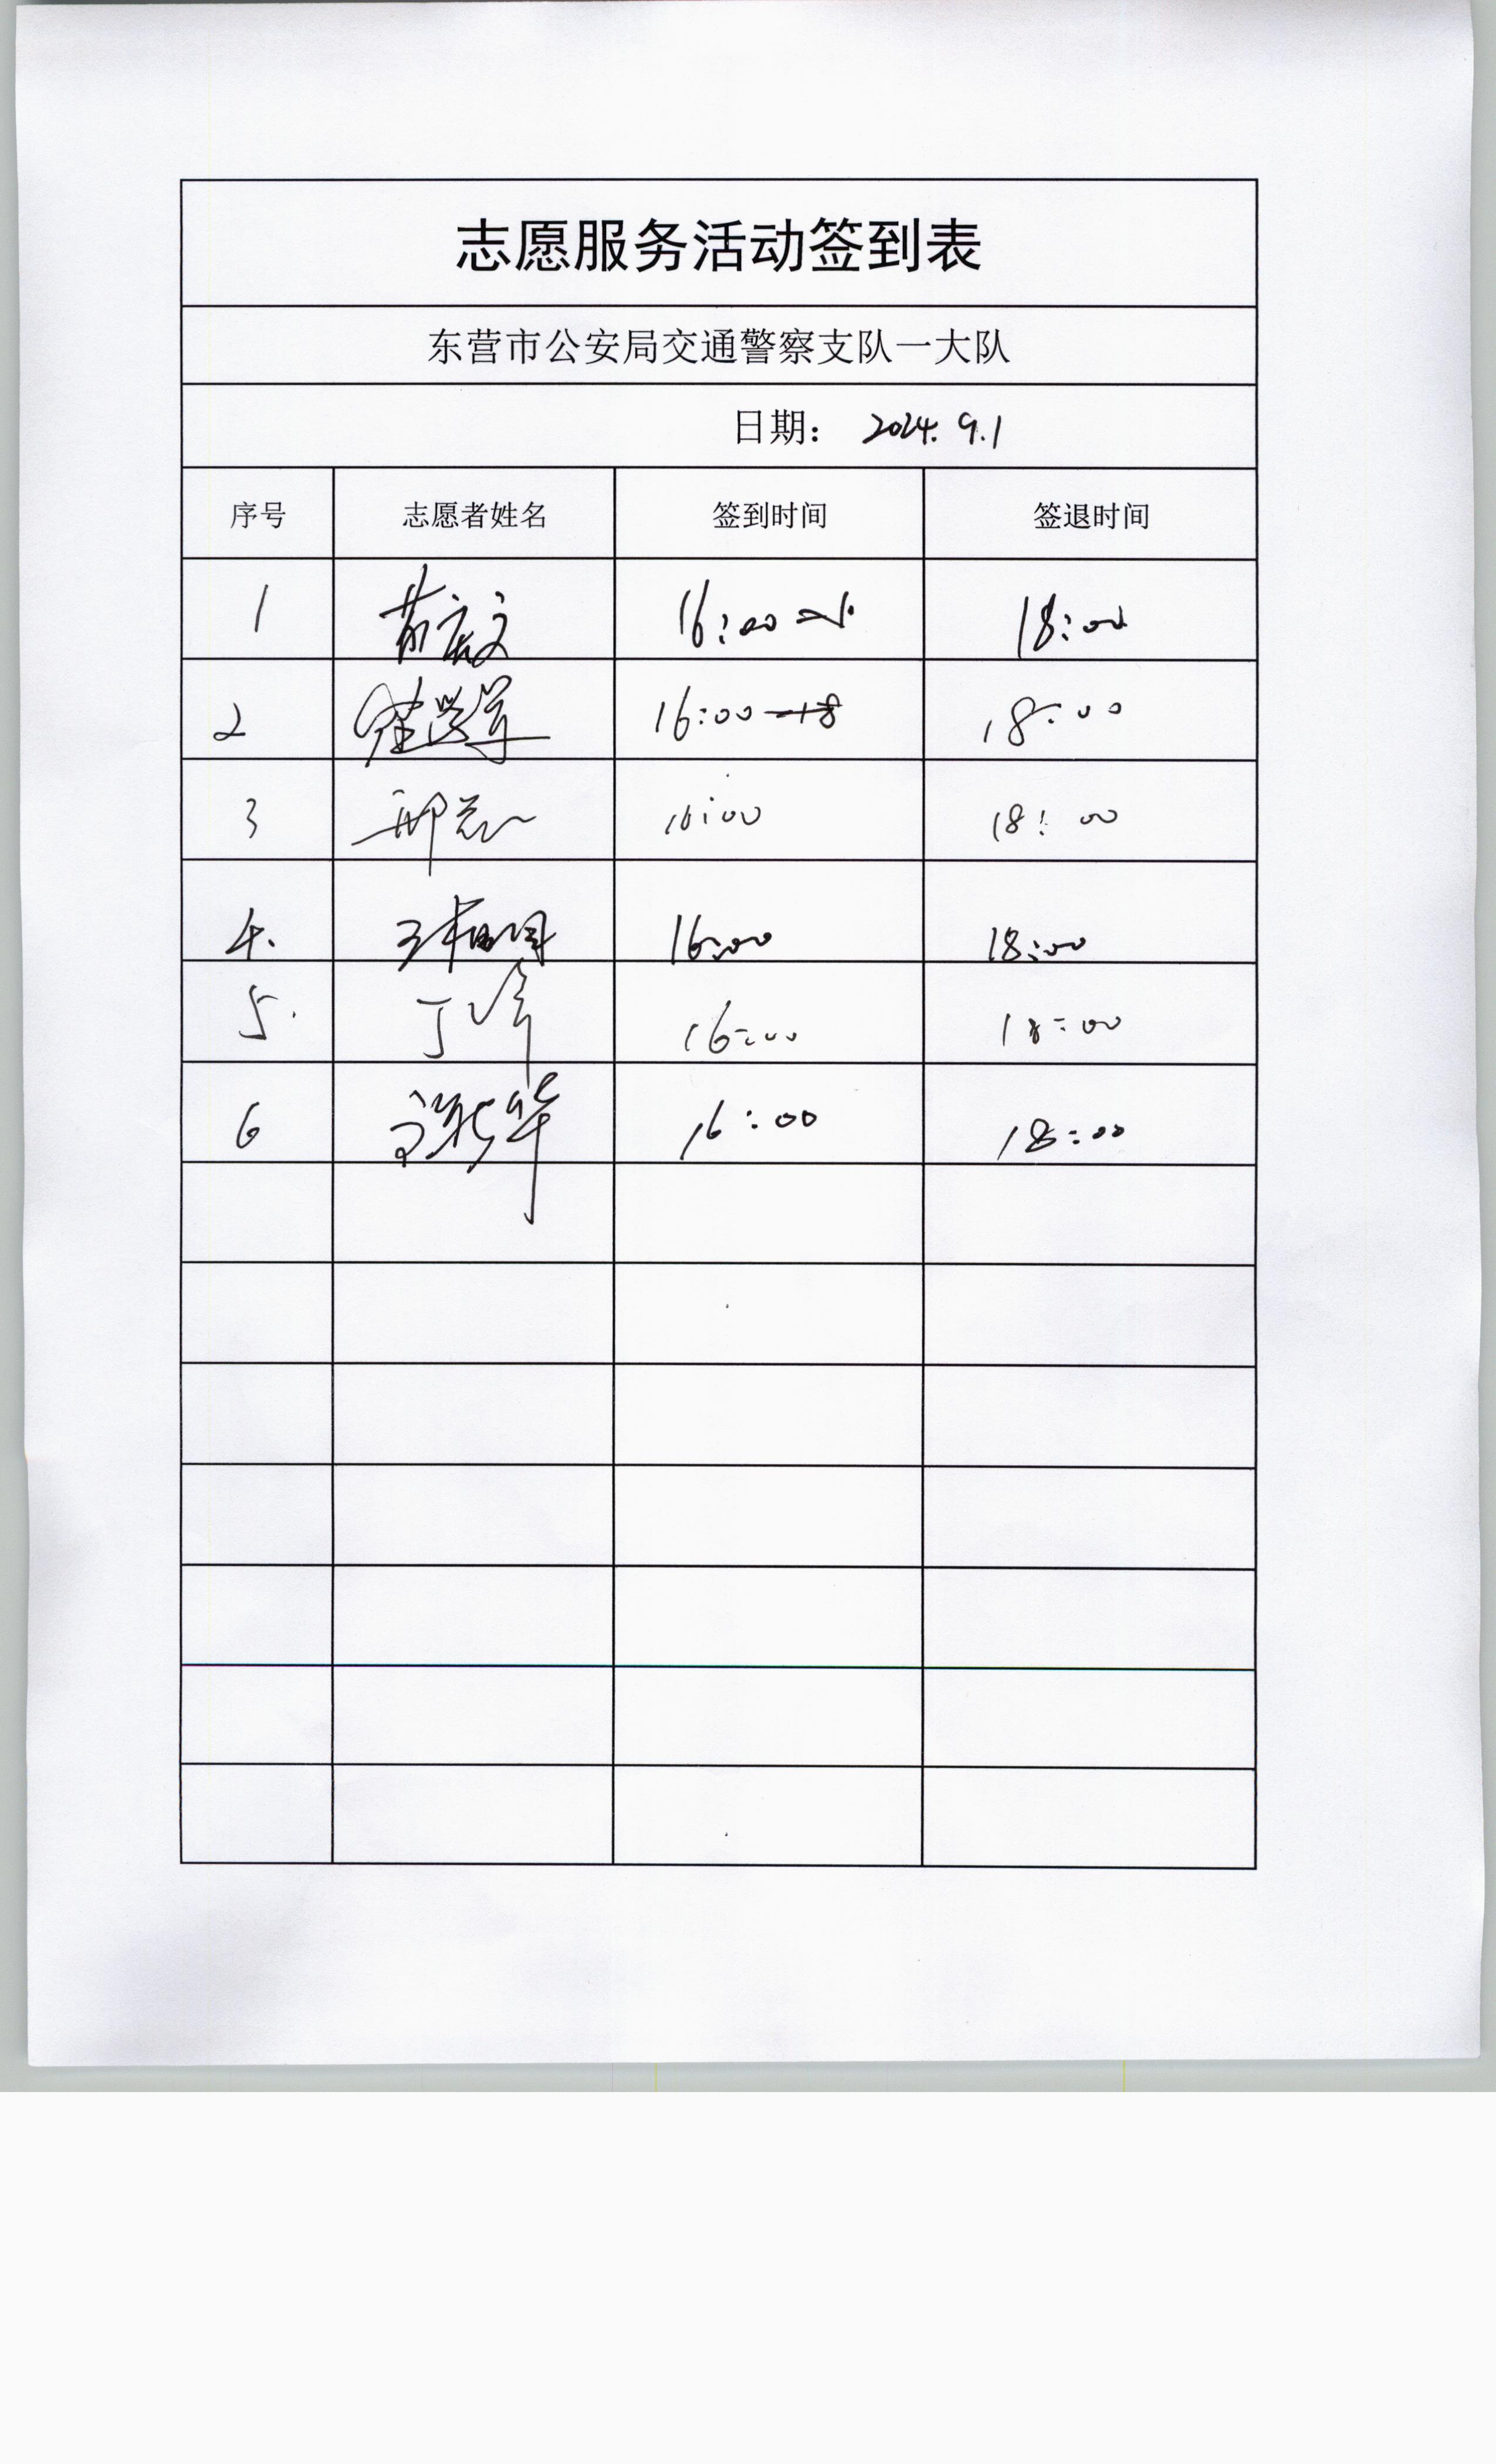 志愿服务活动签到表
东营市公安局交通警察支队一大队
日期： 2024.9.1
序号 志愿者姓名 签到时间 签退时间
1 16:00 18:00
2 16:00 18:00
3 16:00 18:00
4. 16:00 18:00
5. 丁峰 16:00 18:00
6 谢华 16:00 18:00